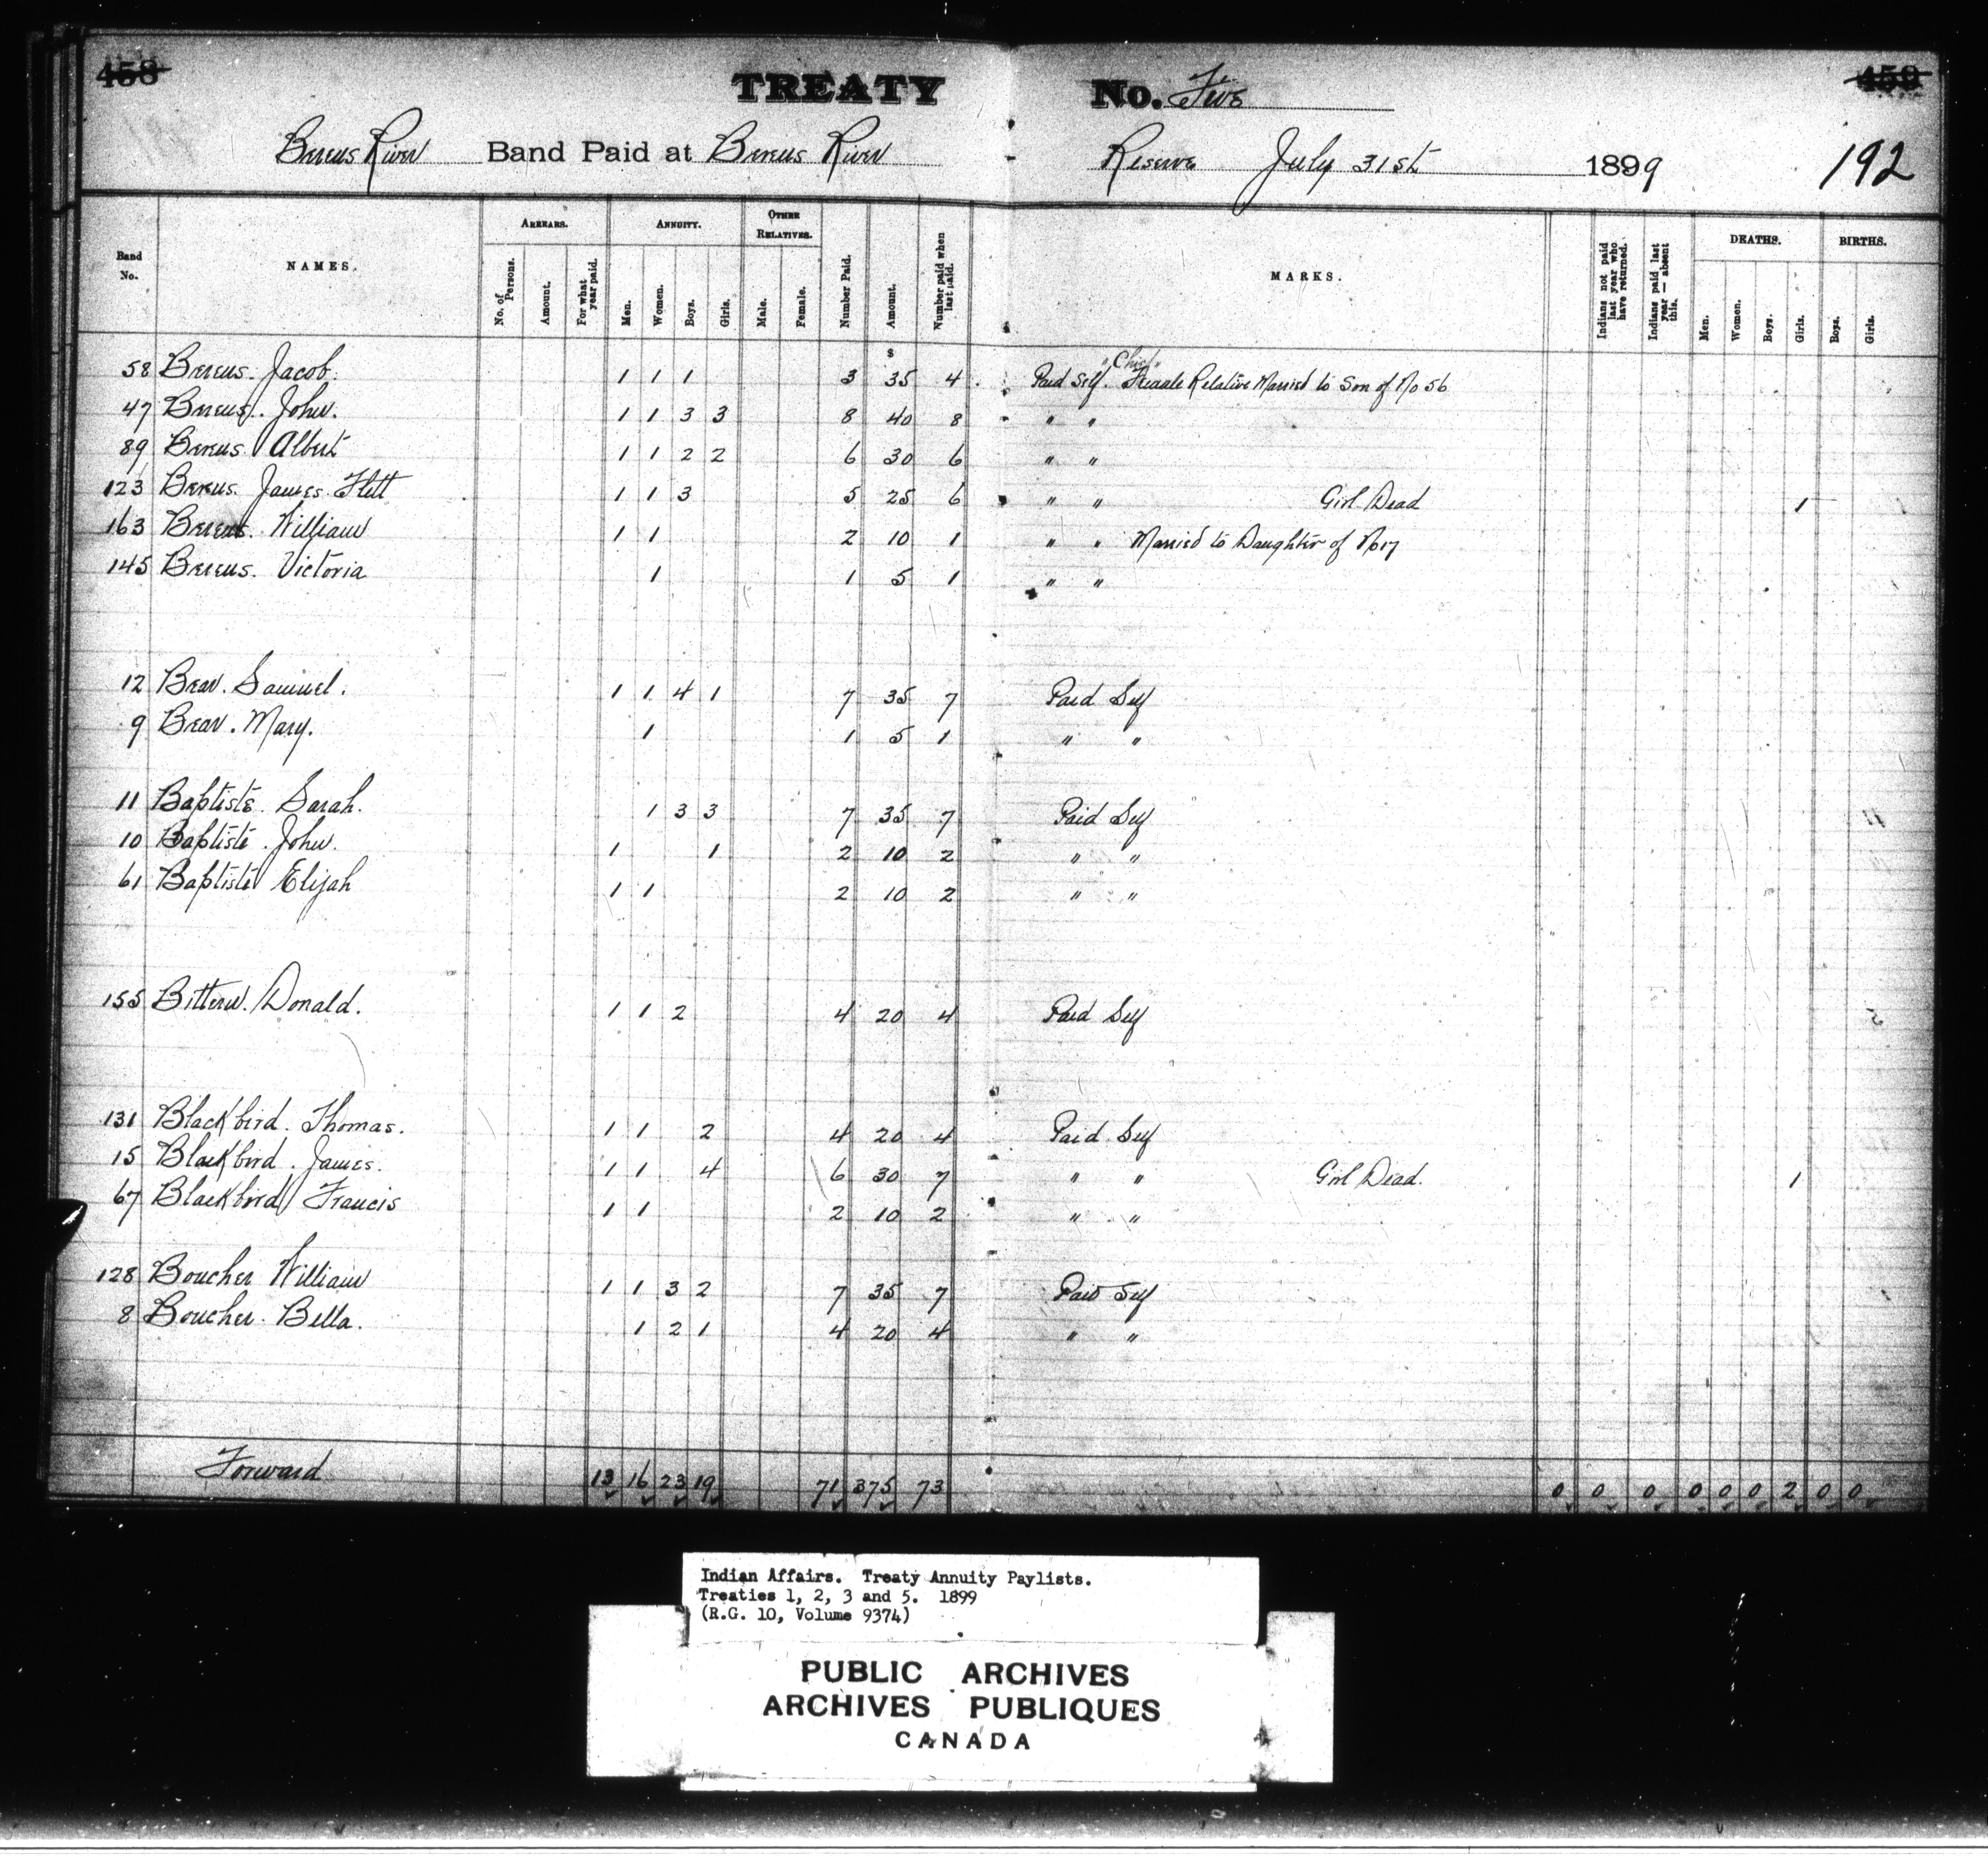 458 TREATY No. Five 459
Berens River Band Paid at Berens River Reserve July 31st 1899 192
Band No. NAMES. ARREARS. No. of Persons. Amount. For what year paid. ANNUITY. Men. Women. Boys. Girls. OTHER RELATIVES. Male. Female. Number Paid. Amount. Number paid when last paid. MARKS. Indians not paid last year who have returned. Indians paid last year — absent this. DEATHS. Men. Women. Boys. Girls. BIRTHS. Boys. Girls.
$
"Chief"
58 Berens. Jacob. 1 1 1 3 35 4 Paid Self. Female Relative Married to Son of No 56
47 Berens. John. 1 1 3 3 8 40 8 " "
89 Berens. Albert 1 1 2 2 6 30 6 " "
123 Berens. James Flett 1 1 3 5 25 6 " " Girl Dead 1
163 Berens. William 1 1 2 10 1 " " Married to Daughter of No 17
145 Berens. Victoria 1 1 5 1 " "
12 Bear. Samuel. 1 1 4 1 7 35 7 Paid Self
9 Bear. Mary. 1 1 5 1 " "
11 Baptiste. Sarah. 1 3 3 7 35 7 Paid Self
10 Baptiste. John. 1 1 2 10 2 " "
61 Baptiste Elijah 1 1 2 10 2 " "
155 Bittern. Donald. 1 1 2 4 20 4 Paid Self
131 Blackbird. Thomas. 1 1 2 4 20 4 Paid Self
15 Blackbird. James. 1 1 4 6 30 7 " " Girl Dead. 1
67 Blackbird Francis 1 1 2 10 2 " "
128 Boucher William 1 1 3 2 7 35 7 Paid Self
8 Boucher. Bella. 1 2 1 4 20 4 " "
Forward 13 16 23 19 71 375 73 0 0 0 0 0 0 2 0 0
Indian Affairs. Treaty Annuity Paylists.
Treaties 1, 2, 3 and 5. 1899
(R.G. 10, Volume 9374)
PUBLIC ARCHIVES
ARCHIVES PUBLIQUES
CANADA